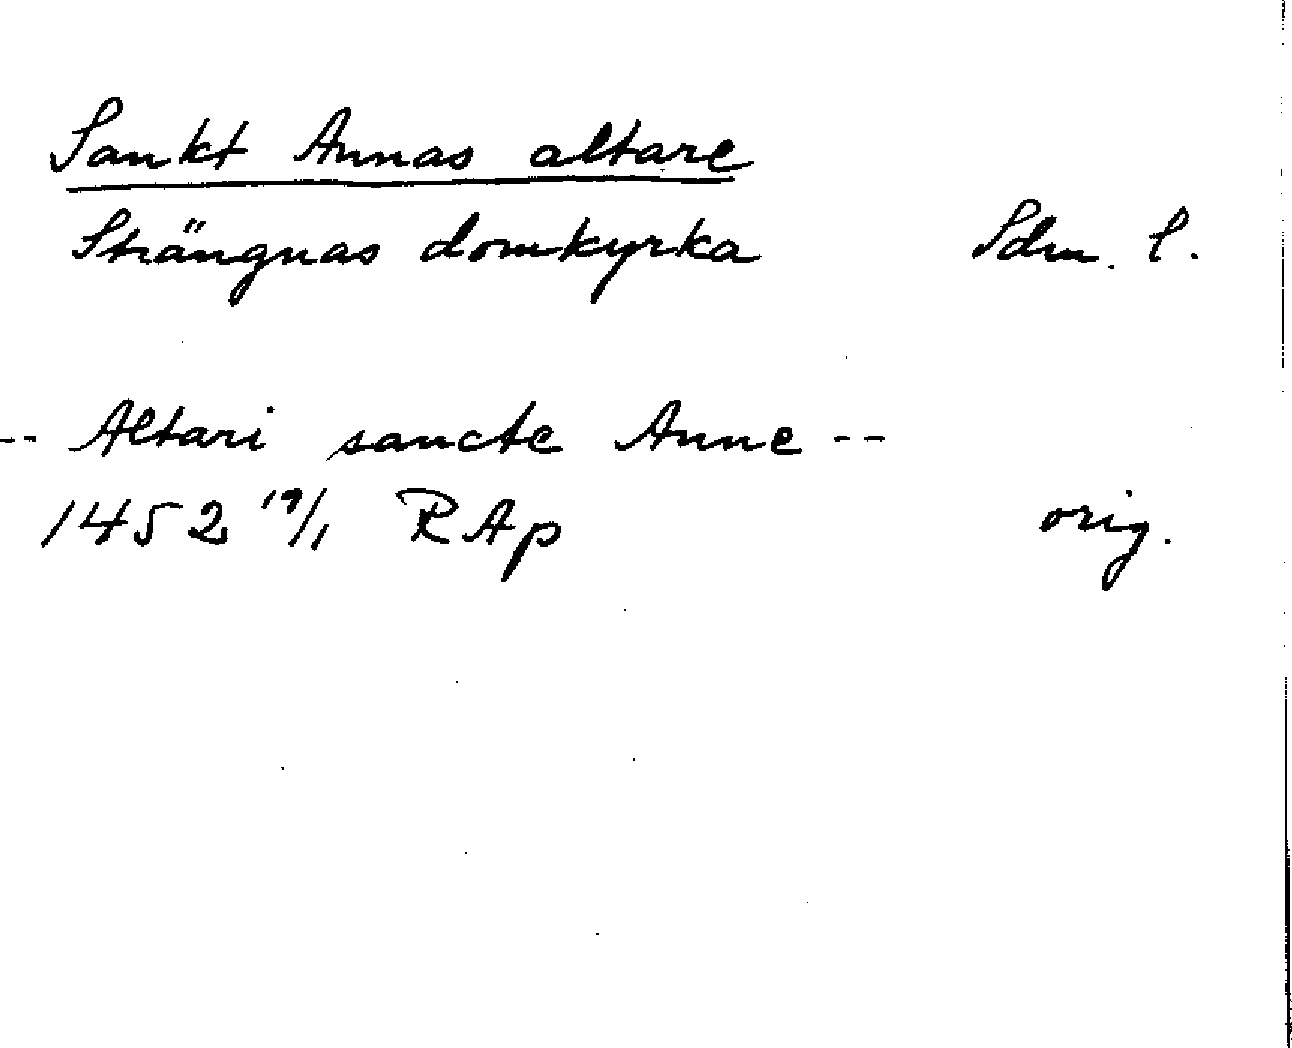 Sankt Annas altare
Strängnas domkyrka Sdm. l.
-- Altari sancte Anne --
1452 19/1 RAp orig.